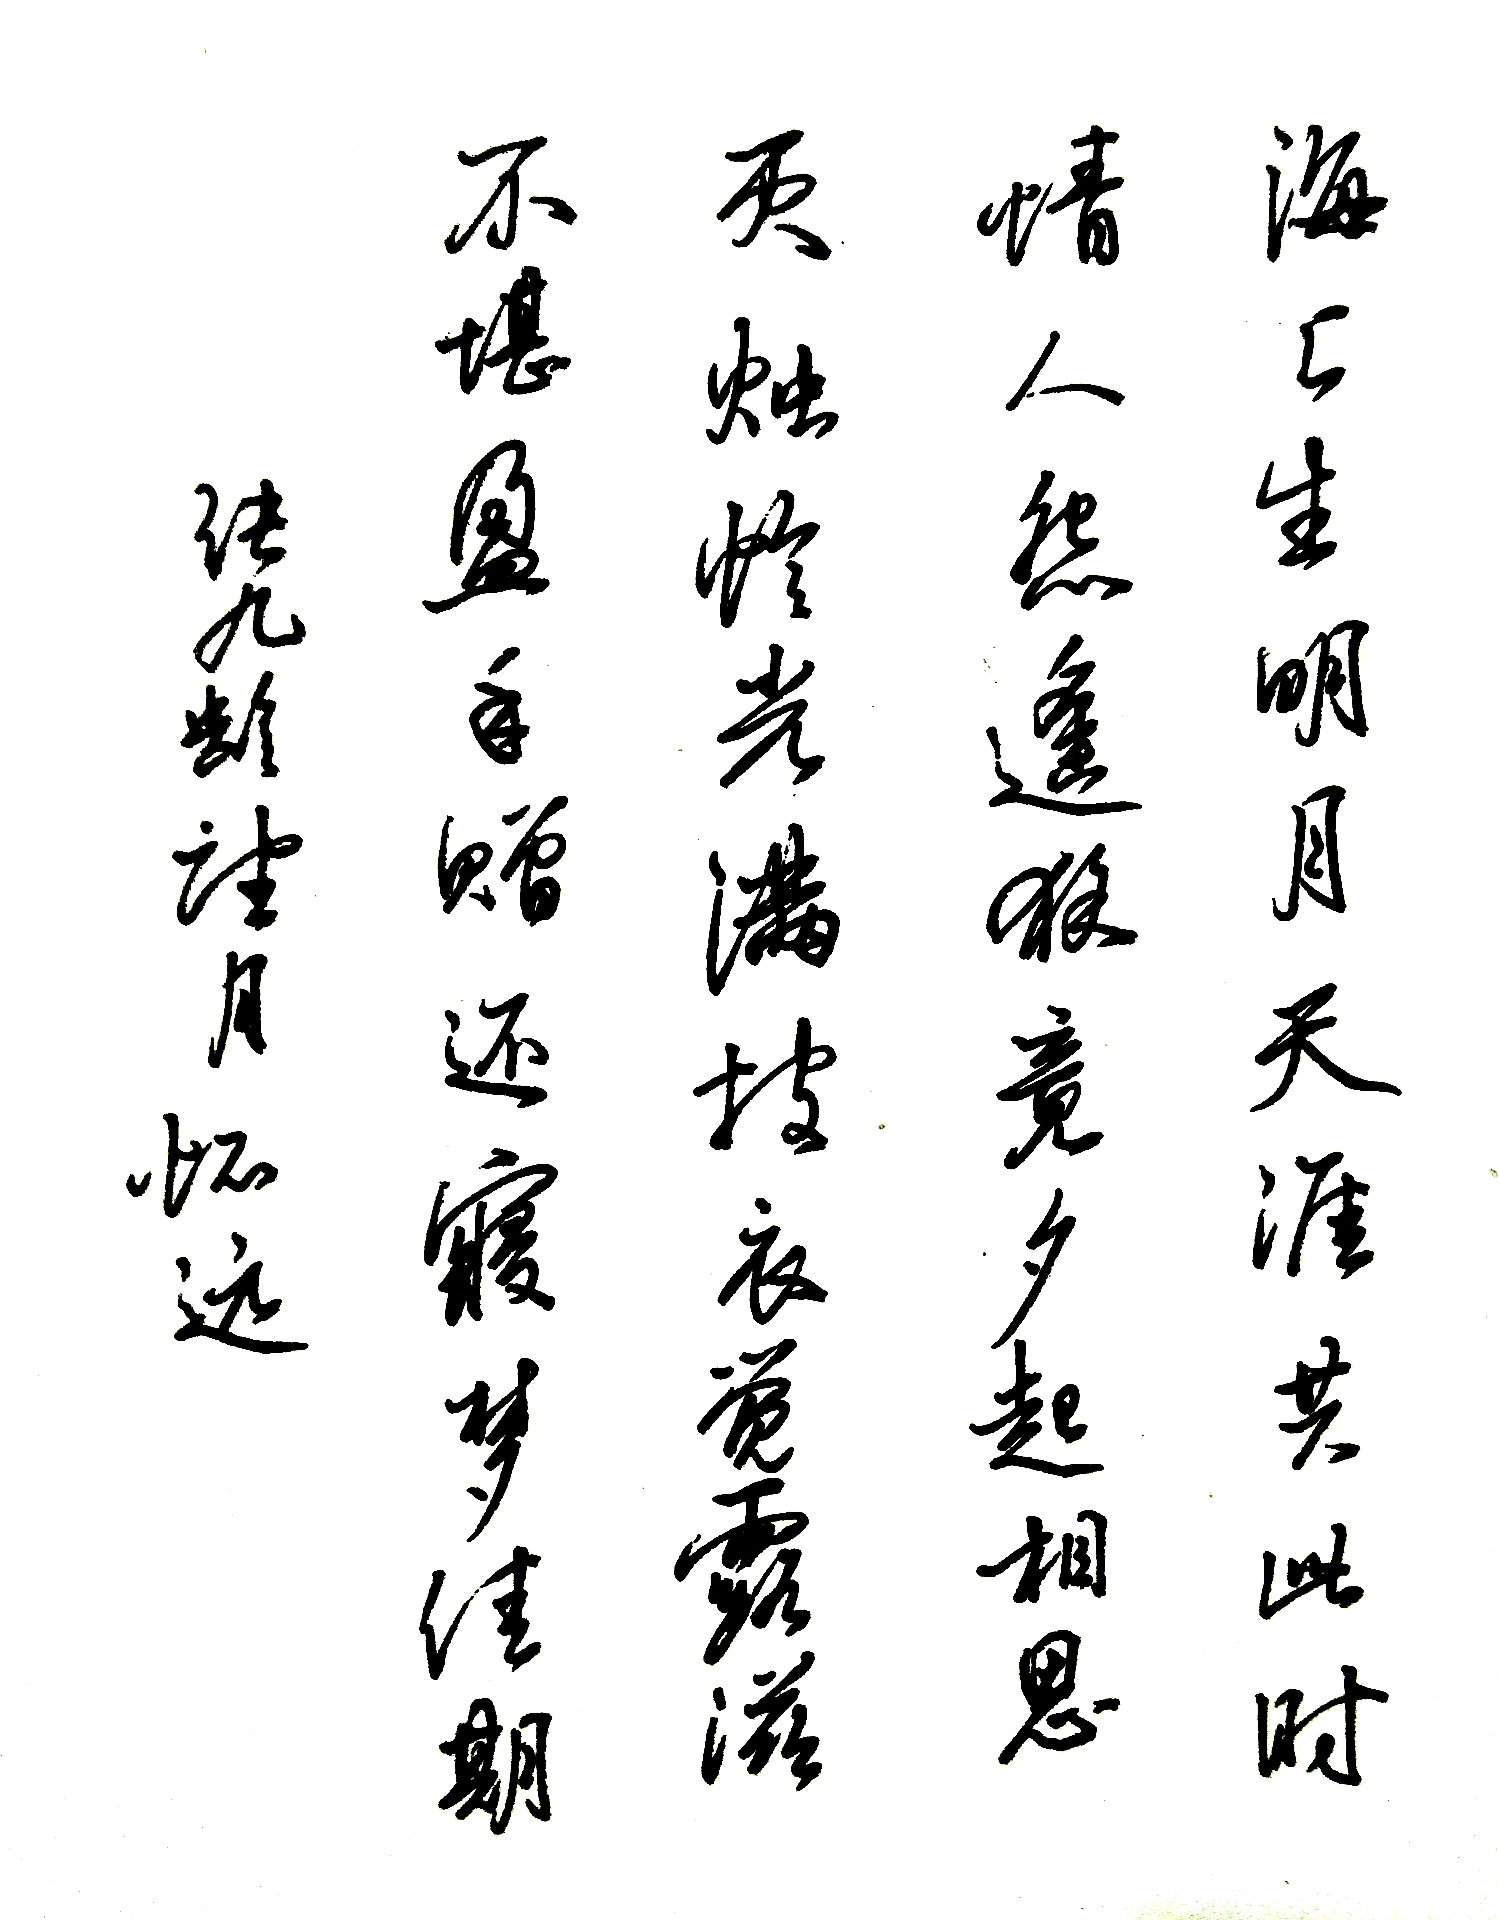 海上生明月天涯共此时
情人怨遥夜竟夕起相思
灭烛怜光满披衣觉露滋
不堪盈手赠还寝梦佳期
张九龄望月怀远